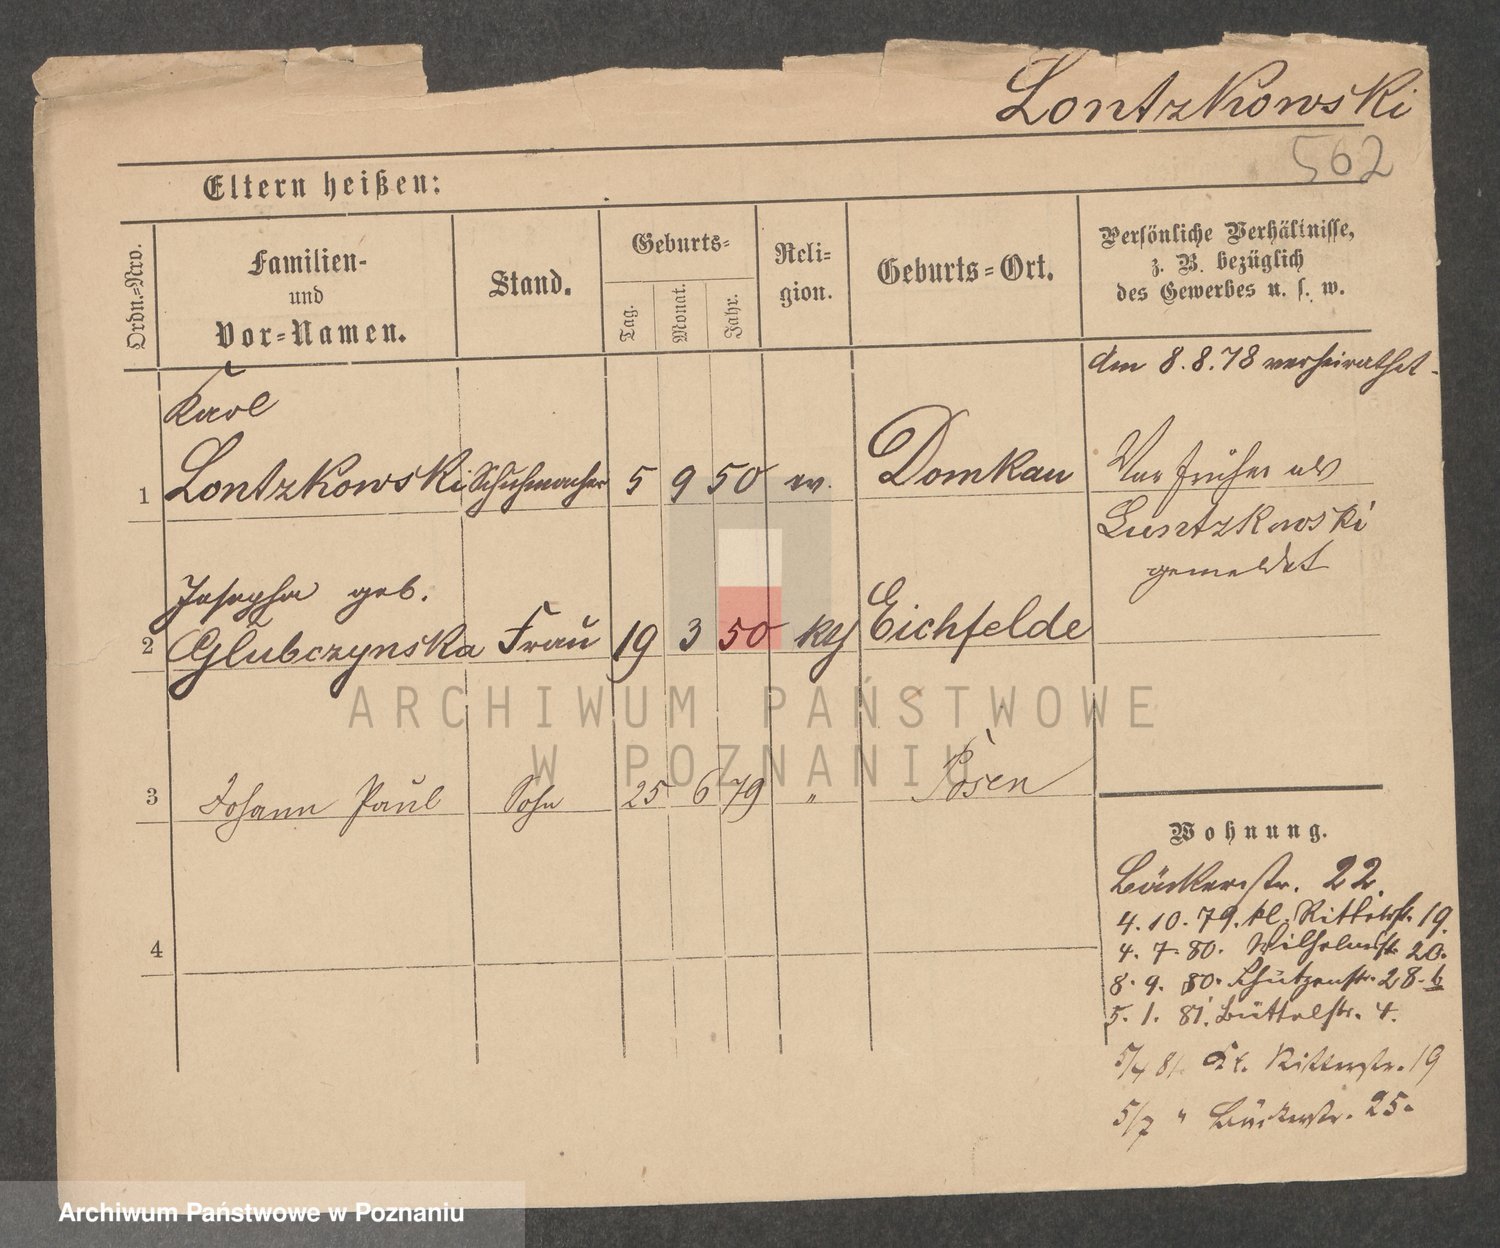 Lontzkowski
562
Eltern heißen:
Ordn.-Nro.
Familien-
und
Vor-Namen.
Stand.
Geburts-
Tag.
Monat.
Jahr.
Reli-
gion.
Geburts-Ort.
Persönliche Verhältnisse,
z. B. bezüglich
des Gewerbes u. s. w.
am 8.8.78 verheirathet.
Karl
1 Lontzkowski Schuhmacher 5 9 50 ev. Domkau
War früher als
Luntzkowski
gemeldet
Josepha geb.
2 Glubczynska Frau 19 3 50 kth Eichfelde
3 Johann Paul Sohn 25 6 79 " Posen
4
Wohnung.
Bäckerstr. 22.
4.10.79. kl. Ritterstr. 19.
4. 7. 80. Wilhelmstr. 20.
8. 9. 80. Schützenstr. 28.b
5. 1. 81. Büttelstr. 4.
5/4 81. Kl. Ritterstr. 19
5/7 " Bäckerstr. 25.
ARCHIWUM PAŃSTWOWE
W POZNANIU
Archiwum Państwowe w Poznaniu